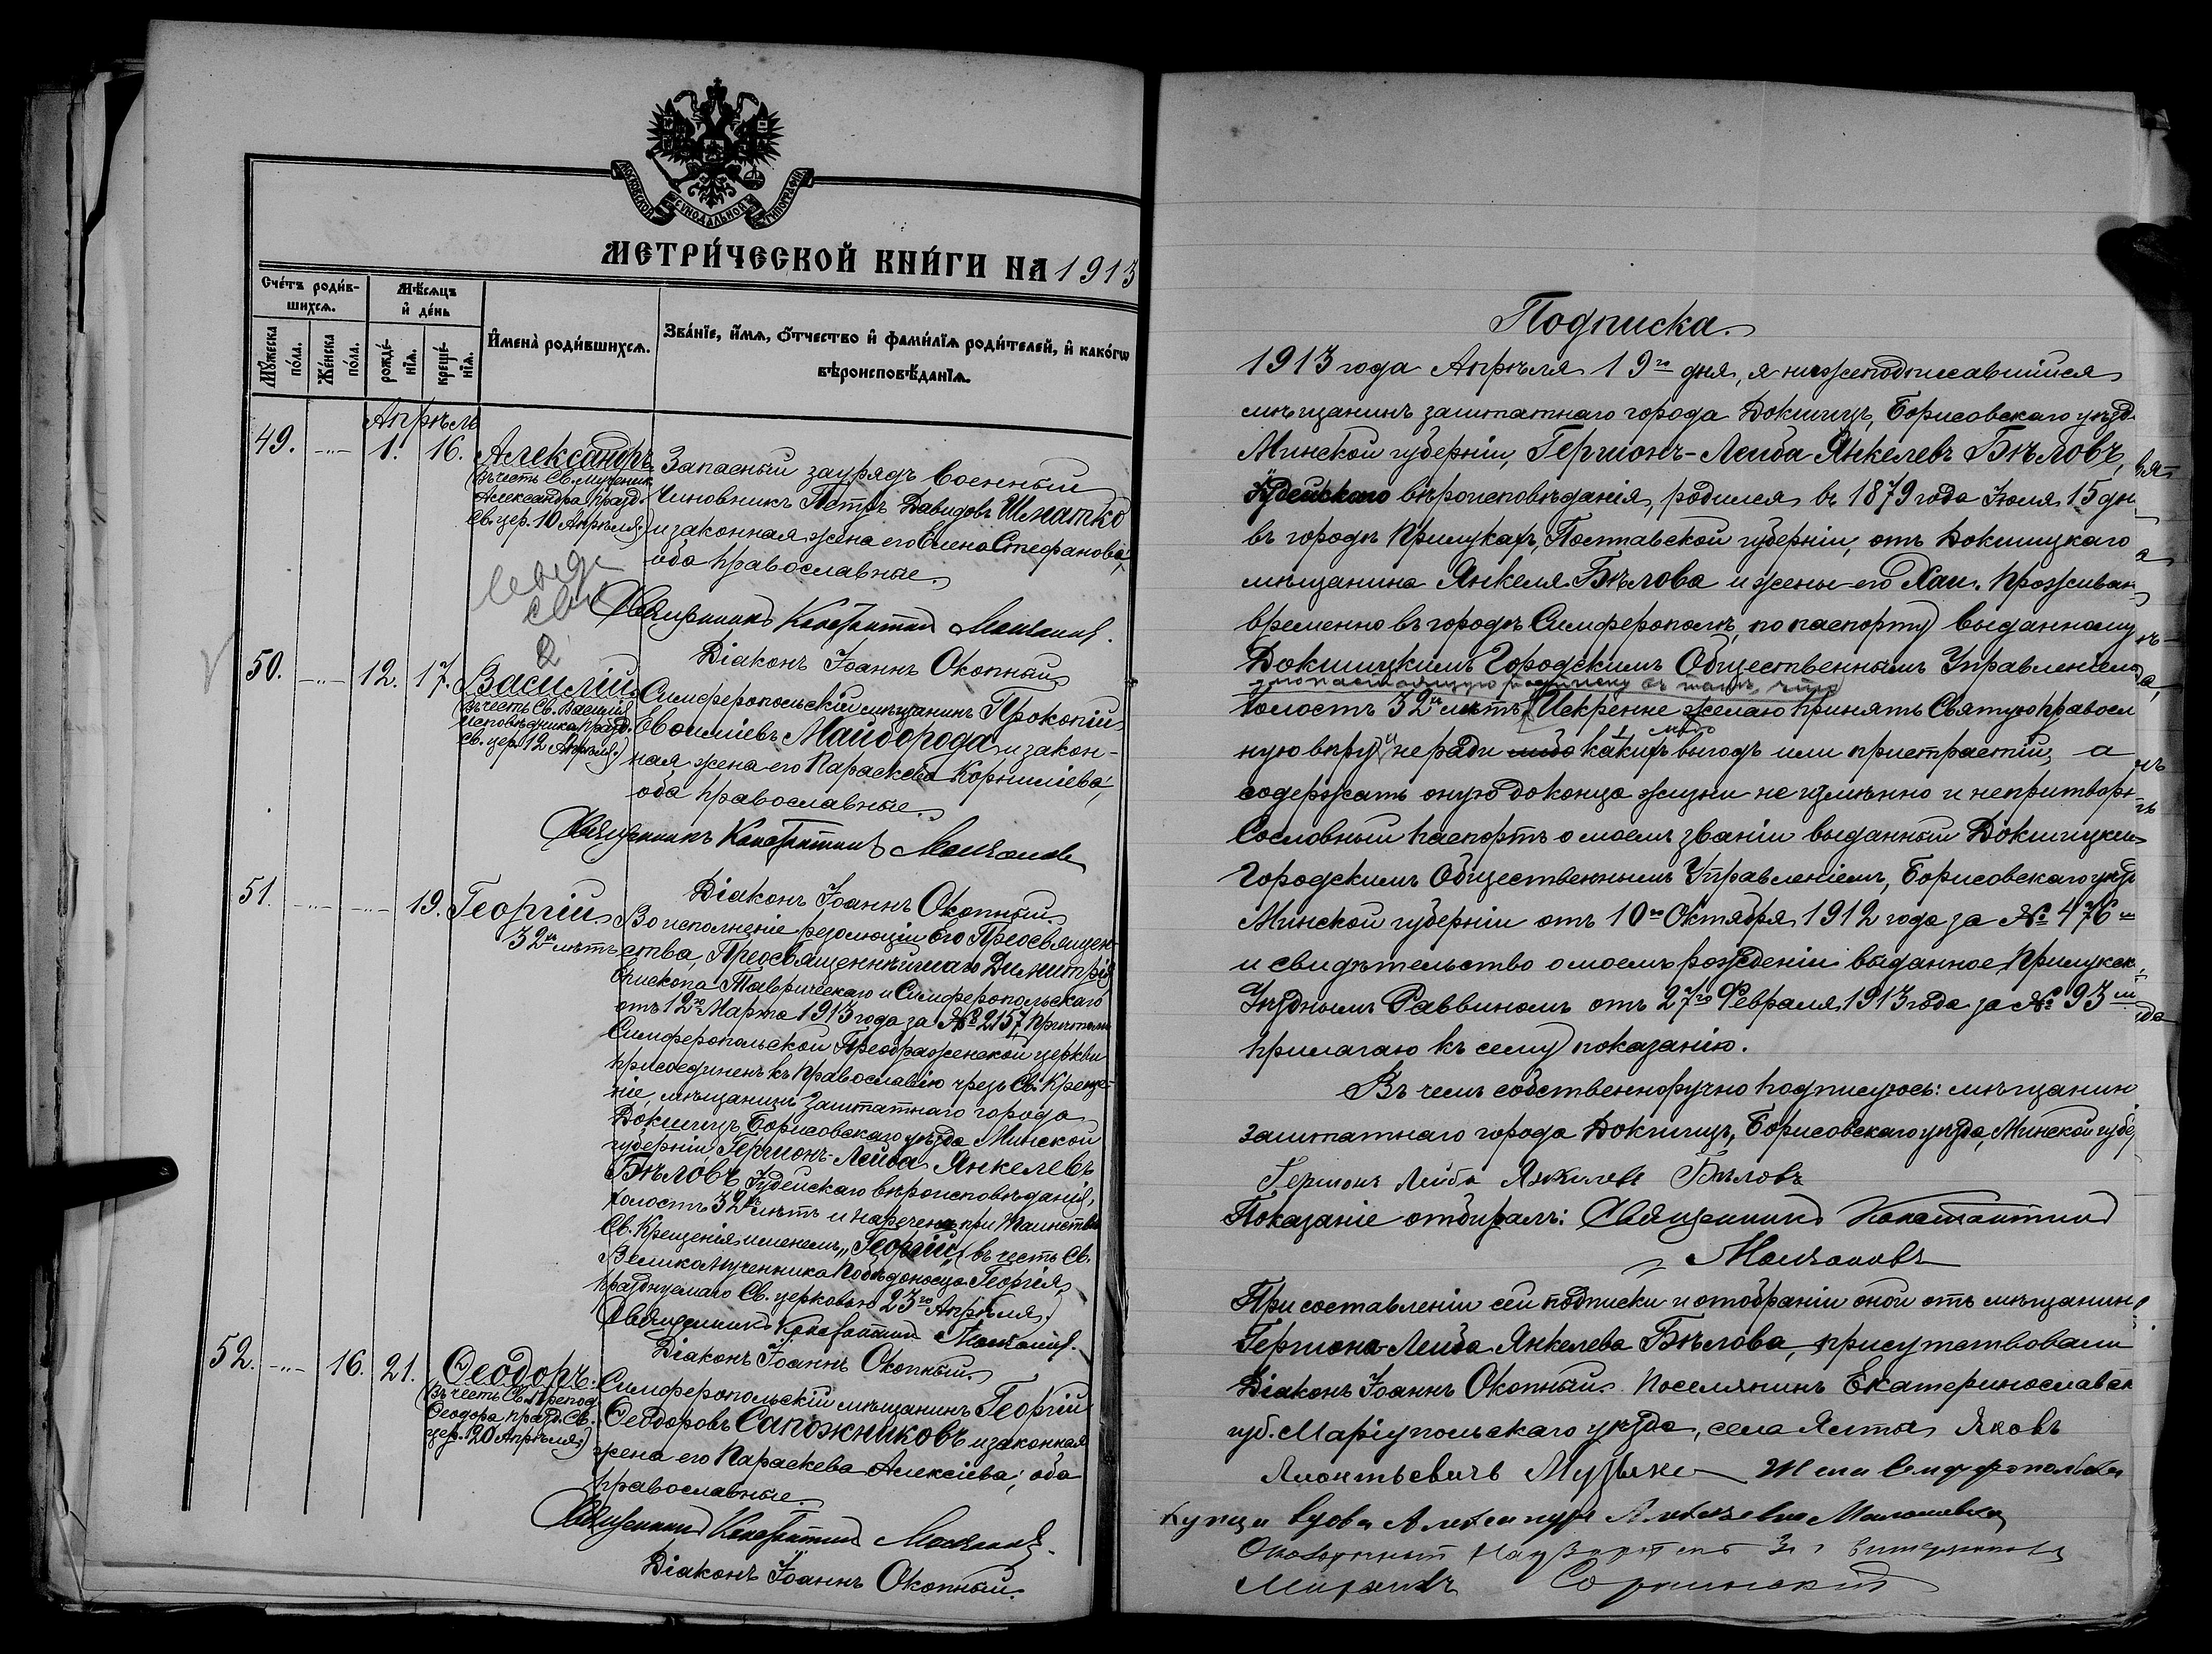 МОСКОВСКОЙ СѴНОДАЛЬНОЙ ТИПОГРАФІИ
МЕТРИ́ЧЕСКОЙ КНИ́ГИ НА 1913
Сче́тъ роди́в-
шихсѧ.
Мѣ́сѧцъ
и҆ де́нь
Мꙋ́жеска
по́ла.
Же́нска
по́ла.
рожде́-
нїѧ.
креще́-
нїѧ.
И҆мена̀ роди́вшихсѧ.
Зва́нїе, и҆́мѧ, о҆́тчество и҆ фами́лїѧ роди́телей, и҆ како́гѡ
вѣроисповѣ́данїѧ.
Апрѣль
49. -"- 1. 16. Александръ
(въ честь Св. мученик.
Александра празд.
Св. цер. 10 Апрѣля)
Запасный заурядъ военный
Чиновникъ Петръ Давидовъ Шматко
и законная жена его Елена Стефанова,
оба православные.
Священникъ Константинъ Молчановъ.
Діаконъ Іоаннъ Окопный
50. -"- 12. 17. Василій
(въ честь Св. Василія
исповѣдника празд.
Св. цер. 12 Апрѣля)
Симферопольскій мѣщанинъ Прокопій
Василіевъ Майборода и закон-
ная жена его Параскева Корниліева,
оба православные.
Священникъ Константинъ Молчановъ
Діаконъ Іоаннъ Окопный.
51. -"- -"- 19. Георгій
32хъ лѣтъ
Во исполненіе резолюціи Его Преосвящен-
ства, Преосвященнѣйшаго Димитрія
Епископа Таврическаго и Симферопольскаго
отъ 12го Марта 1913 года за № 2157 причтомъ
Симферопольской Преображенской церкви
присоединенъ къ Православію чрезъ Св. Креще-
ніе, мѣщанинъ заштатнаго города
Докшицъ, Борисовскаго уѣзда Минской
губерніи, Гершонъ-Лейба Янкелевъ
Бѣловъ Іудейскаго вѣроисповѣданія,
холостъ 32хъ лѣтъ и нареченъ при таинствѣ
Св. Крещенія именемъ „Георгій" (въ честь Св.
Великомученника Побѣдоносца Георгія,
празднуемаго Св. церковью 23го Апрѣля.)
Священникъ Константинъ Молчановъ.
Діаконъ Іоаннъ Окопный.
52. -"- 16. 21. Ѳеодоръ.
(въ честь Св. Препод.
Ѳеодора празд. Св.
цер. 20 Апрѣля)
Симферопольскій мѣщанинъ Георгій
Ѳеодоровъ Сапожниковъ и законная
жена его Параскева Алексіева; оба
православные.
Священникъ Константинъ Молчановъ.
Діаконъ Іоаннъ Окопный.
Подписка.
1913 года Апрѣля 19го дня, я нижеподписавшійся
мѣщанинъ заштатнаго города Докшицъ, Борисовскаго уѣзд.
Минской губерніи, Гершонъ-Лейба Янкелевъ Бѣловъ,
Іудейскаго вѣроисповѣданія, родился въ 1879 года Іюля 15 дн
въ городѣ Прилукахъ, Полтавской губерніи, отъ Докшицкаго
мѣщанина Янкеля Бѣлова и жены его Хаи. Проживаю
временно въ городѣ Симферополѣ, по паспорту выданному
Докшицкимъ Городскимъ Общественнымъ Управленіемъ
даю настоящую подписку въ томъ, что
холостъ 32хъ лѣтъ Искренне желаю принять Святую Правосл
ную вѣру и не ради либо какихъ либо выгодъ или пристрастій, а
содержать оную до конца жизни неизмѣнно и непритворн
Сословный паспортъ о моемъ званіи выданный Докшицким
Городскимъ Общественнымъ Управленіемъ, Борисовскаго уѣзд
Минской губерніи отъ 10го Октября 1912 года за № 476
и свидѣтельство о моемъ рожденіи выданное Прилукск.
Уѣзднымъ Раввиномъ отъ 27го Февраля 1913 года за № 93
прилагаю къ сему показанію.
Въ чемъ собственноручно подписуюсь: мѣщанин
заштатнаго города Докшицъ, Борисовскаго уѣзда, Минской губе
Гершонъ Лейба Янкелевъ Бѣловъ
Показаніе отбиралъ: Священникъ Константинъ
Молчановъ
При составленіи сей подписки и отобраніи оной отъ мѣщанин
Гершона-Лейба Янкелева Бѣлова, присутствовали
Діаконъ Іоаннъ Окопный. Поселянинъ Екатеринославск
губ. Маріупольскаго уѣзда, села Ялты Яковъ
Леонтьевичъ
купца вдова Александра
Околоточный Надзиратель